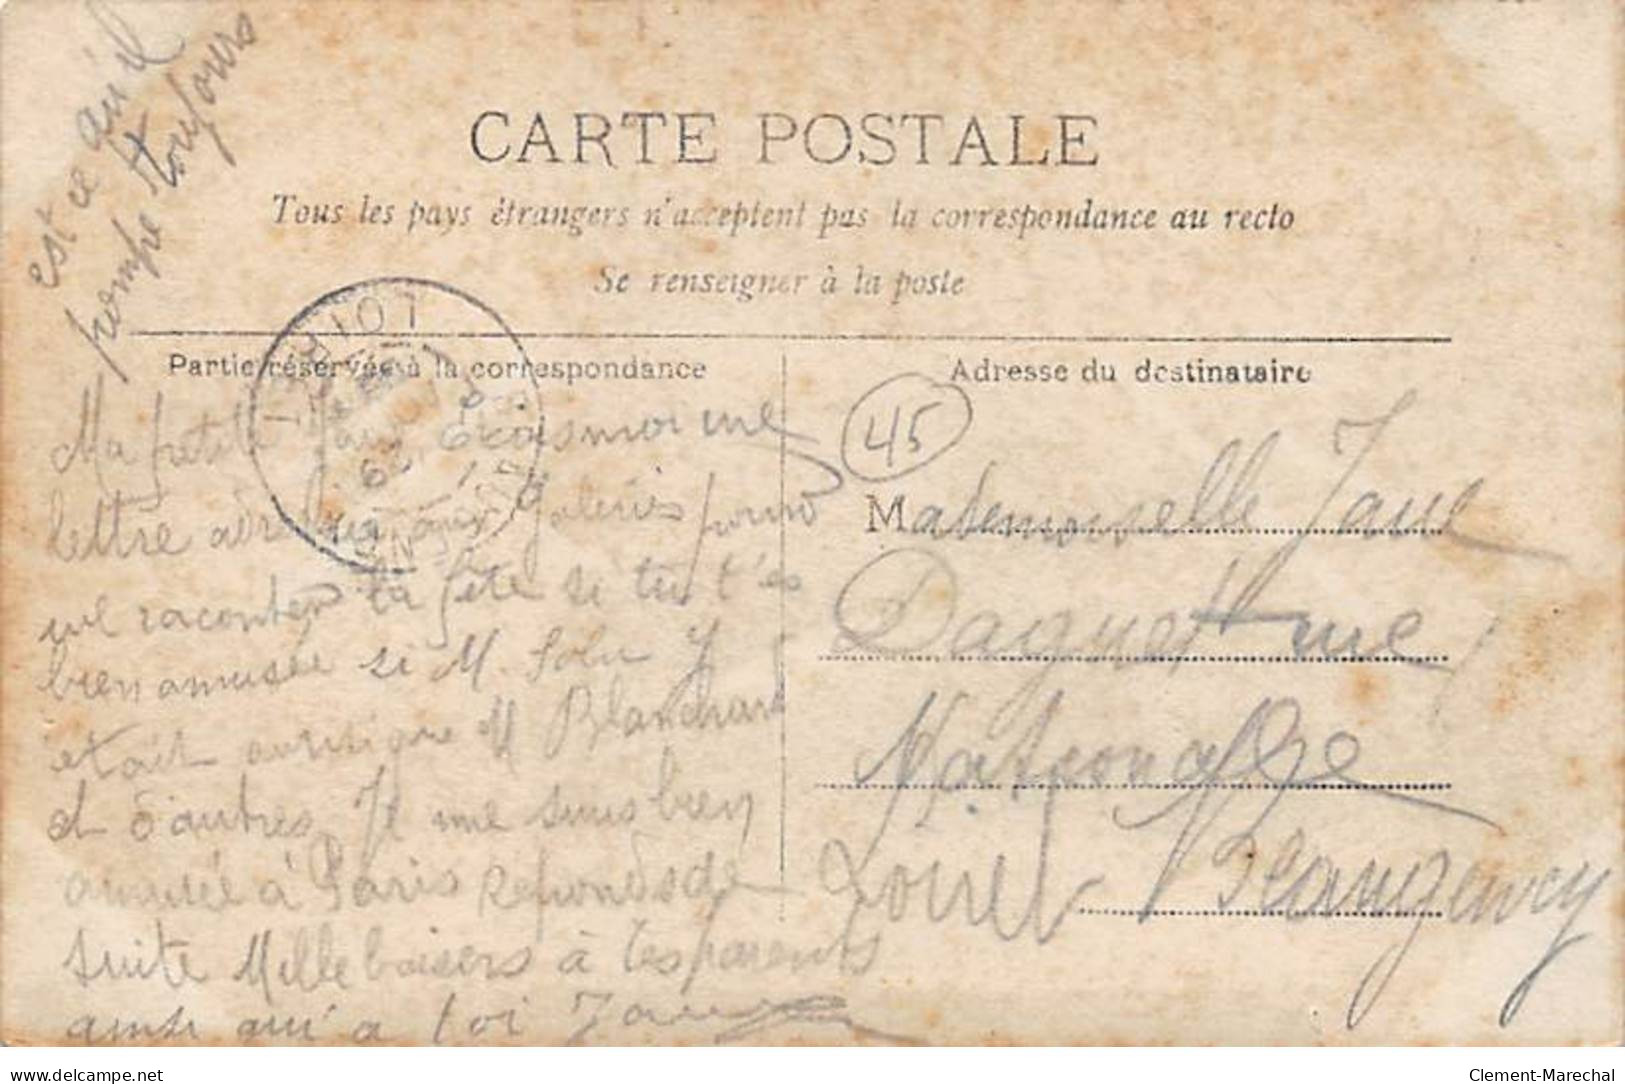 est ce qu'il
pompe toujours
CARTE POSTALE
Tous les pays étrangers n'acceptent pas la correspondance au recto
Se renseigner à la poste
Partie réservée à la correspondance
Ma petite Jane Ecris moi une
lettre aux Galeries pour
me raconter la fête si tu t'es
bien amusée si M. Y
était ainsi que M Blanchard
et d'autres Je me suis bien
amusée à Paris Reponds de
suite Mille baisers à tes parents
ainsi qu'à toi Jane
Adresse du destinataire
45
Mademoiselle Jane
Daguet rue
Nationale
Beaugency
Loiret
LOIRET
delcampe.net
Clement-Marechal